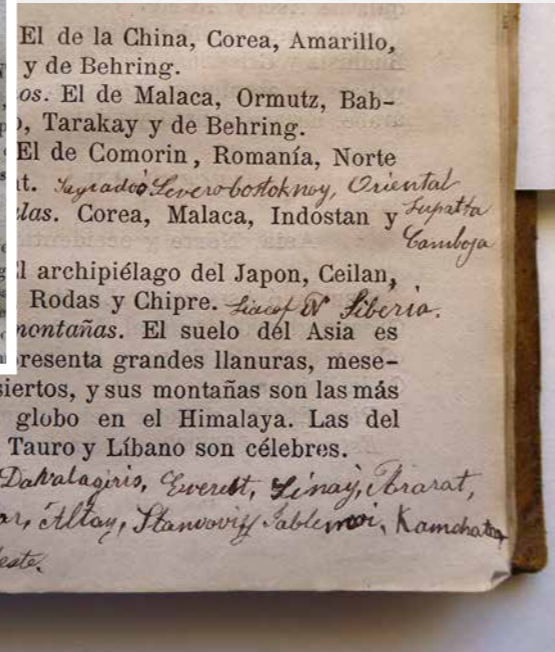 El de la China, Corea, Amarillo,
y de Behring.
os. El de Malaca, Ormutz, Bab-
, Tarakay y de Behring.
El de Comorin, Romanía, Norte
t. Sagrado ó Severobostoknoy, Oriental
las. Corea, Malaca, Indostan y
Camboja
l archipiélago del Japon, Ceilan,
Rodas y Chipre. N Siberia.
montañas. El suelo del Asia es
presenta grandes llanuras, mese-
siertos, y sus montañas son las más
globo en el Himalaya. Las del
Tauro y Líbano son célebres.
Davalagiris, Everest, Sinay, Ararat,
Altay, Stanovif Jablonoi, Kamchatka
este.